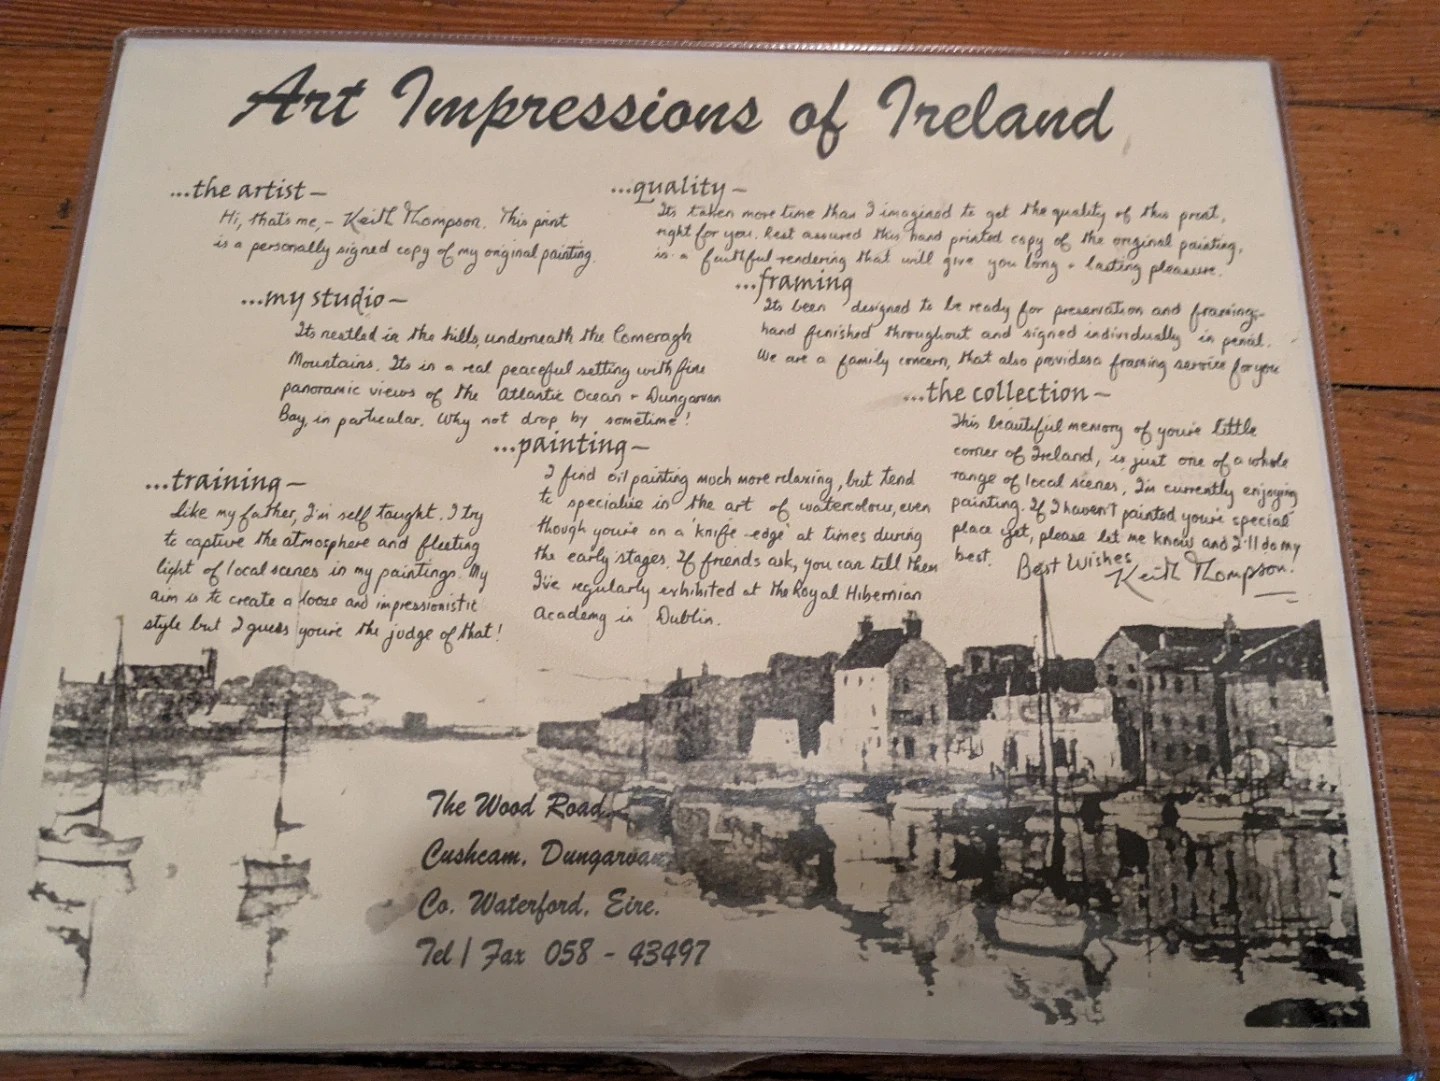 Art Impressions of Ireland
...the artist–
Hi, that's me,– Keith Thompson. This print
is a personally signed copy of my original painting.
...quality–
Its taken more time than I imagined to get the quality of this print,
right for you. Rest assured this hand printed copy of the original painting,
is a faithful rendering that will give you long + lasting pleasure.
...my studio–
Its nestled in the hills, underneath the Comeragh
Mountains. Its in a real peaceful setting with fine
panoramic views of the Atlantic Ocean + Dungarvan
Bay, in particular. Why not drop by sometime!
...framing
Its been designed to be ready for preservation and framing–
hand finished throughout and signed individually in pencil.
We are a family concern, that also provides a framing service for you
...the collection–
This beautiful memory of you're little
corner of Ireland, is just one of a whole
range of local scenes, I'm currently enjoying
painting. If I haven't painted you're special
place yet, please let me know and I'll do my
best.
Best Wishes
Keith Thompson.
...painting–
I find oil painting much more relaxing, but tend
to specialise in the art of watercolour, even
though you're on a 'knife-edge' at times during
the early stages. If friends ask, you can tell them
I've regularly exhibited at the Royal Hibernian
Academy in Dublin.
...training–
Like my father, I'm self taught. I try
to capture the atmosphere and fleeting
light of local scenes in my paintings. My
aim is to create a loose and impressionistic
style but I guess you're the judge of that!
The Wood Road,
Cushcam, Dungarvan
Co. Waterford, Eire.
Tel / Fax 058 - 43497